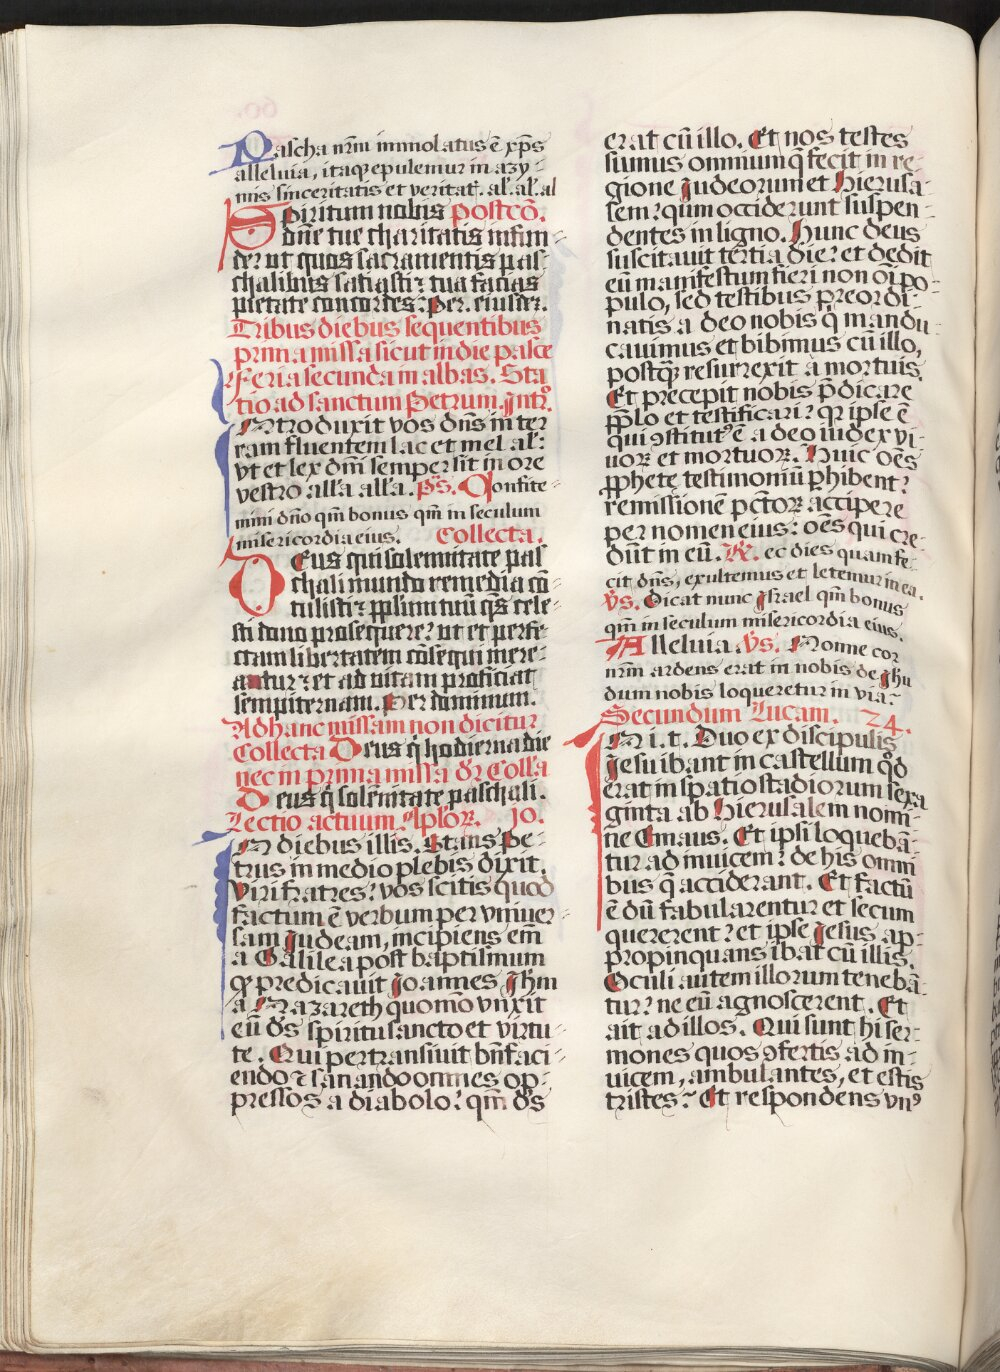 Pascha nr̄m immolatus ē xp̄s
alleluia, itaq; epulemur in azy-
mis sinceritatis et veritat̄. al̄. al̄. al
Spiritum nobis postcō.
dn̄e tue charitatis infun-
de: ut quos sacramentis pas-
chalibus satiasti: tua facias
pietate concordes: Per. eiusdē.
Tribus diebus sequentibus
prima missa sicut in die pasce
Feria secunda in albas. Sta
tio ad sanctum Petrum. Intr̄.
Introduxit vos dn̄s in ter
ram fluentem lac et mel al̄:
vt et lex dn̄i semper sit in ore
vestro all̄a all̄a. ps̄. Confite-
mini dn̄o qm̄ bonus qm̄ in seculum
misericordia eius. Collecta.
Deus qui solemnitate pas
chali mundo remedia cō
tulisti: pp̄lum tuū qs̄ cele-
sti dono prosequere? ut et perfe-
ctam libertatem cōsequi mere-
antur: et ad vitam proficiat
sempiternam. Per dominum.
Ad hanc missam non dicitur
Collecta Deus q̄ hodierna die
nec in prima missa dr̄ Coll̄a
Deus q̄ solēnitate paschali.
Lectio actuum Apl̄oꝝ. 10.
In diebus illis. Stans Pe-
trus in medio plebis dixit.
Viri fratres? vos scitis quod
factum ē verbum per vniuer-
sam Judeam, incipiens em̄
a Galilea post baptismum
qꝫ predicauit Joannes Jhm
a Nazareth quomō vnxit
eū ds̄ spiritu sancto et virtu-
te. Qui pertransiuit bn̄faci-
endo ꝛ sanando omnes op-
pressos a diabolo? qm̄ ds̄
erat cū illo. Et nos testes
sumus omnium q̄ fecit in re-
gione Judeorum et Hierusa-
lem? quem occiderunt suspen-
dentes in ligno. Hunc deus
suscitauit tertia die? et dedit
eū manifestum fieri non oī po-
pulo, sed testibus preordi-
natis a deo nobis q̄ mandu-
cauimus et bibimus cū illo,
postq̄ꝫ resurrexit a mortuis.
Et precepit nobis p̄dicare
pp̄lo et testificari? qꝛ ipse ē
qui ꝯstitutꝰ ē a deo iudex vi-
uoꝝ et mortuoꝝ. Huic oēs
pp̄hete testimoniū phibent?
remissionē pctōꝝ accipere
per nomen eius: oēs qui cre-
dūt in eū. R̄. ec dies quam fe-
cit dn̄s, exultemus et letemur in ea.
Vs. Dicat nunc Israel qm̄ bonus
qm̄ in seculum misericordia eius.
Alleluia. Vs. Nonne cor
nr̄m ardens erat in nobis de Jhu
dum nobis loqueretur in via?
Secundum Lucam. 24.
In i. t. Duo ex discipulis
Jesu ibant in castellum qd̄
erat in spatio stadiorum sexa
ginta ab Hierusalem nomi-
ne Emaus. Et ipsi loquebā-
tur ad inuicem? de his omni
bus q̄ acciderant. Et factū
ē dū fabularentur et secum
quererent? et ipse Jesus ap-
propinquans ibat cū illis.
Oculi autem illorum tenebā-
tur? ne eū agnoscerent. Et
ait ad illos. Qui sunt hi ser-
mones quos ꝯfertis ad in-
uicem, ambulantes, et estis
tristes? Et respondens vnꝰ